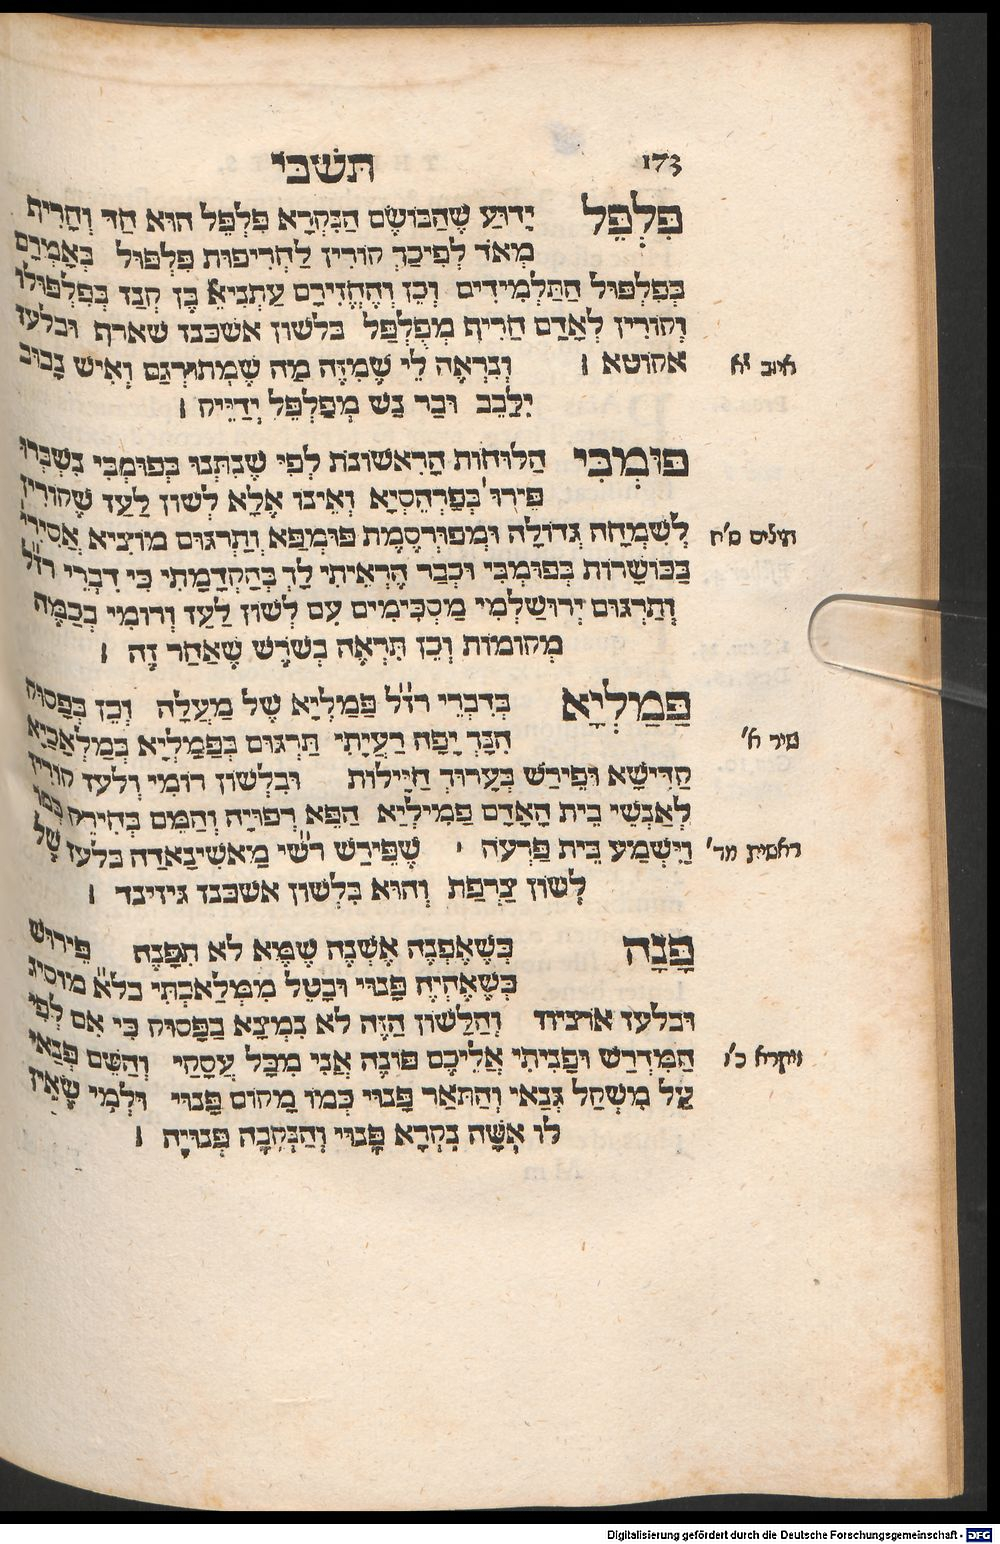 173
תשבי
פִּלְפֵּל יָדוּעַ שֶׁהַבּוֹשֶׂם הַנִּקְרָא פִּלְפֵּל הוּא חַד וְחָרִיף
מְאֹד לְפִיכָךְ קוֹרִין לַחֲרִיפוּת פִּלְפּוּל כְּאָמְרָם
בְּפִלְפּוּל הַתַּלְמִידִים וְכֵן וְהֶחֱזִירָם עָתְנִיאֵ בֶּן קְנַז בְּפִלְפּוּלוֹ
וְקוֹרִין לְאָדָם חָרִיף מְפֻלְפָּל בלשון אשכנז שארף ובלעז
אקוטא : וְנִרְאֶה לִי שֶׁמִּזֶּה מַה שֶׁמְתוּרְגַּם וְאִישׁ נָבוּב
איוב י"א
יִלָּבֵב וּבַר נַשׁ מְפַלְפֵּל יְדַיֵּיק :
פּוּמְבִּי הַלּוּחוֹת הָרִאשׁוֹנוֹת לְפִי שֶׁנִּתְּנוּ בְּפוּמְבִּי נִשְׁבְּרוּ
פֵּירוּ' בְּפַרְהֶסְיָא וְאֵינוֹ אֶלָּא לְשׁוֹן לַעַז שֶׁקּוֹרִין
לְשִׂמְחָה גְדוֹלָה וּמְפוּרְסֶמֶת פּוּמְפָּא וְתַרְגּוּם מוֹצִיא אֲסִירִי'
תהלים ס"ח
בַּכּוֹשָׁרוֹת בְּפוּמְבִּי וּכְבָר הֶרְאֵיתִי לָךְ בְּהַקְדָּמָתִי כִּי דִבְרֵי רז"ל
וְתַרְגּוּם יְרוּשַׁלְמִי מַסְכִּימִים עִם לְשׁוֹן לַעַז וְרוֹמִי בְּכַמָּה
מְקוֹמוֹת וְכֵן תִּרְאֶה בְשֹׁרֶשׁ שֶׁאַחַר זֶה :
פַּמַּלְיָא בְּדִבְרֵי רז"ל פַּמַּלְיָא שֶׁל מַעְלָה וְכֵן בְּפָסוּק
הִנָּךְ יָפָה רַעֲיָתִי תַּרְגּוּם בְּפַמַּלְיָא כְּמַלְאֲכַיָּא
שיר א'
קַדִּישָׁא וּפֵירַשׁ בֶּעָרוּךְ חַיָּילוֹת וּבִלְשׁוֹן רוֹמִי וְלַעַז קוֹרִין
לְאַנְשֵׁי בֵית הָאָדָם פַמִילְיָא הַפֵּא רְפוּיָה וְהַמֵּם בְּחִירֵק כְּמוֹ
וַיִּשְׁמַע בֵּית פַּרְעֹה : שֶׁפֵּירַשׁ רש"י מַאשִׁיבַאדָה בלעז שֶׁל
ראשית מד'
לְשׁוֹן צָרְפַת וְהוּא בִּלְשׁוֹן אשכנז גיזינד :
פָּנָה כְּשֶׁאֶפְנֶה אֶשְׁנֶה שֶׁמָּא לֹא תִפָּנֶה פֵּירוּשׁ
כְּשֶׁאֶהְיֶה פָּנוּי וּבָטֵל מִמְּלַאכְתִּי בל"א מוסיג
ובלעז אוציוזו וְהַלָּשׁוֹן הַזֶּה לֹא נִמְצָא בַּפָּסוּק כִּי אִם לְפִי
הַמִּדְרָשׁ וּפָנִיתִי אֲלֵיכֶם פּוֹנֶה אֲנִי מִכָּל עֲסָקַי וְהַשֵּׁם פְּנַאי
ויקרא כ"ו
עַל מִשְׁקַל גְּנַאי וְהַתֹּאַר פָּנוּי כְּמוֹ מָקוֹם פָּנוּי וּלְמִי שֶׁאֵין
לוֹ אִשָּׁה נִקְרָא פָּנוּי וְהַנְּקֵבָה פְּנוּיָה :
Digitalisierung gefördert durch die Deutsche Forschungsgemeinschaft - DFG